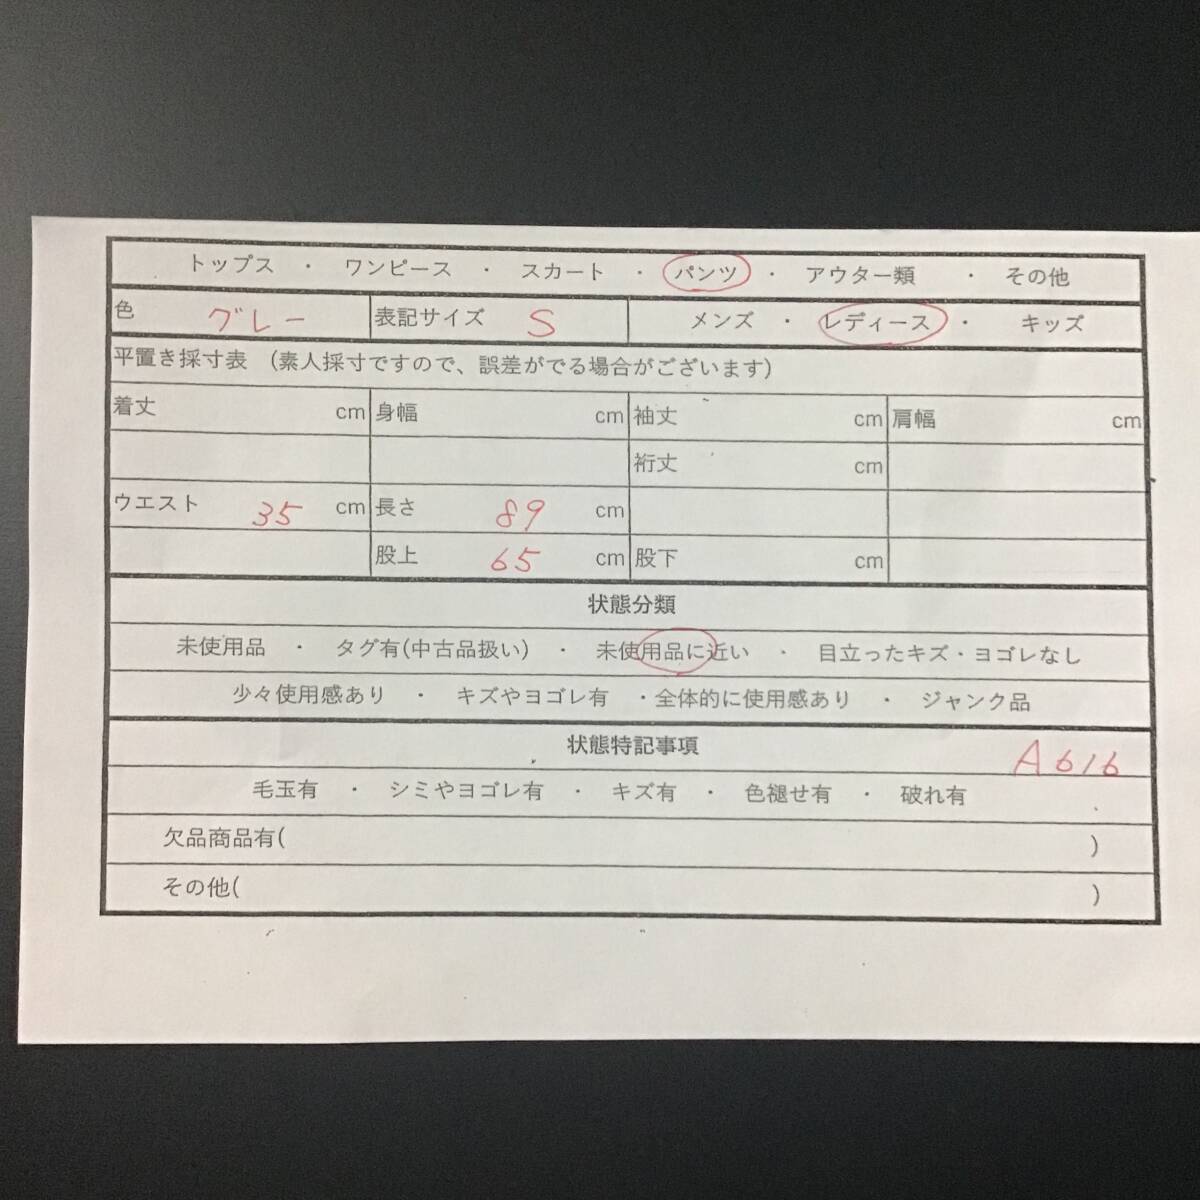 トップス ・ ワンピース ・ スカート ・ パンツ ・ アウター類 ・ その他
色 グレー 表記サイズ S メンズ ・ レディース ・ キッズ
平置き採寸表 (素人採寸ですので、誤差がでる場合がございます)
着丈 cm 身幅 cm 袖丈 cm 肩幅 cm
裄丈 cm
ウエスト 35 cm 長さ 89 cm
股上 65 cm 股下 cm
状態分類
未使用品 ・ タグ有(中古品扱い) ・ 未使用品に近い ・ 目立ったキズ・ヨゴレなし
少々使用感あり ・ キズやヨゴレ有 ・全体的に使用感あり ・ ジャンク品
状態特記事項 A616
毛玉有 ・ シミやヨゴレ有 ・ キズ有 ・ 色褪せ有 ・ 破れ有
欠品商品有( )
その他( )